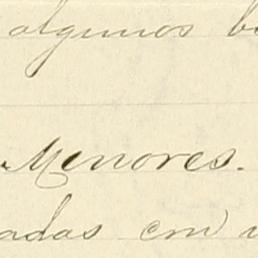 algunos b
Menores.
adas con